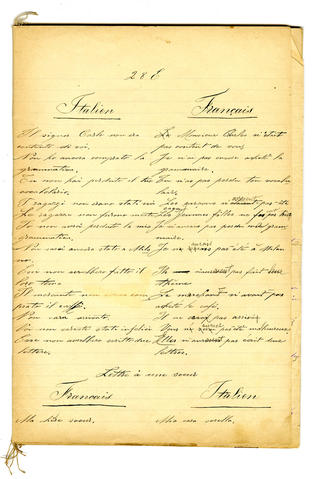 28 E
Italien Français
Il signor Carlo non era Le Monsieur Charles n'était
contento di voi. pas content de vous
Non ho ancora comprato la Je n'ai pas encore acheté la
grammatica. grammaire.
Tu non hai perduto il tuo Tu n'as pas perdu ton vocabu
vocabolario. laire.
I ragazzi non erano stati Les garçons n' pas été
Le ragazze non furono Les jeunes filles ne pas
Io non avrò perduto la mia Je n' pas perdu ma
grammatica. maire.
Non sarà ancora stato a Milano Je ne pas été à Mila
no.
Loro non avrebbero fatto il Ils n' pas fait
loro tema thème
Il mercante non aveva com Le marchand n'avait pas
prato il caffè. acheté le café.
Non sarà arrivato. Il ne pas arrivé
Voi non sareste stati infelici Vous ne pas été malheureux
Esse non avrebbero scritto due Elles n' pas écrit deux
lettere. lettres.
Lettre à une sœur
Français Italien
Ma chère sœur. Mia cara sorella.